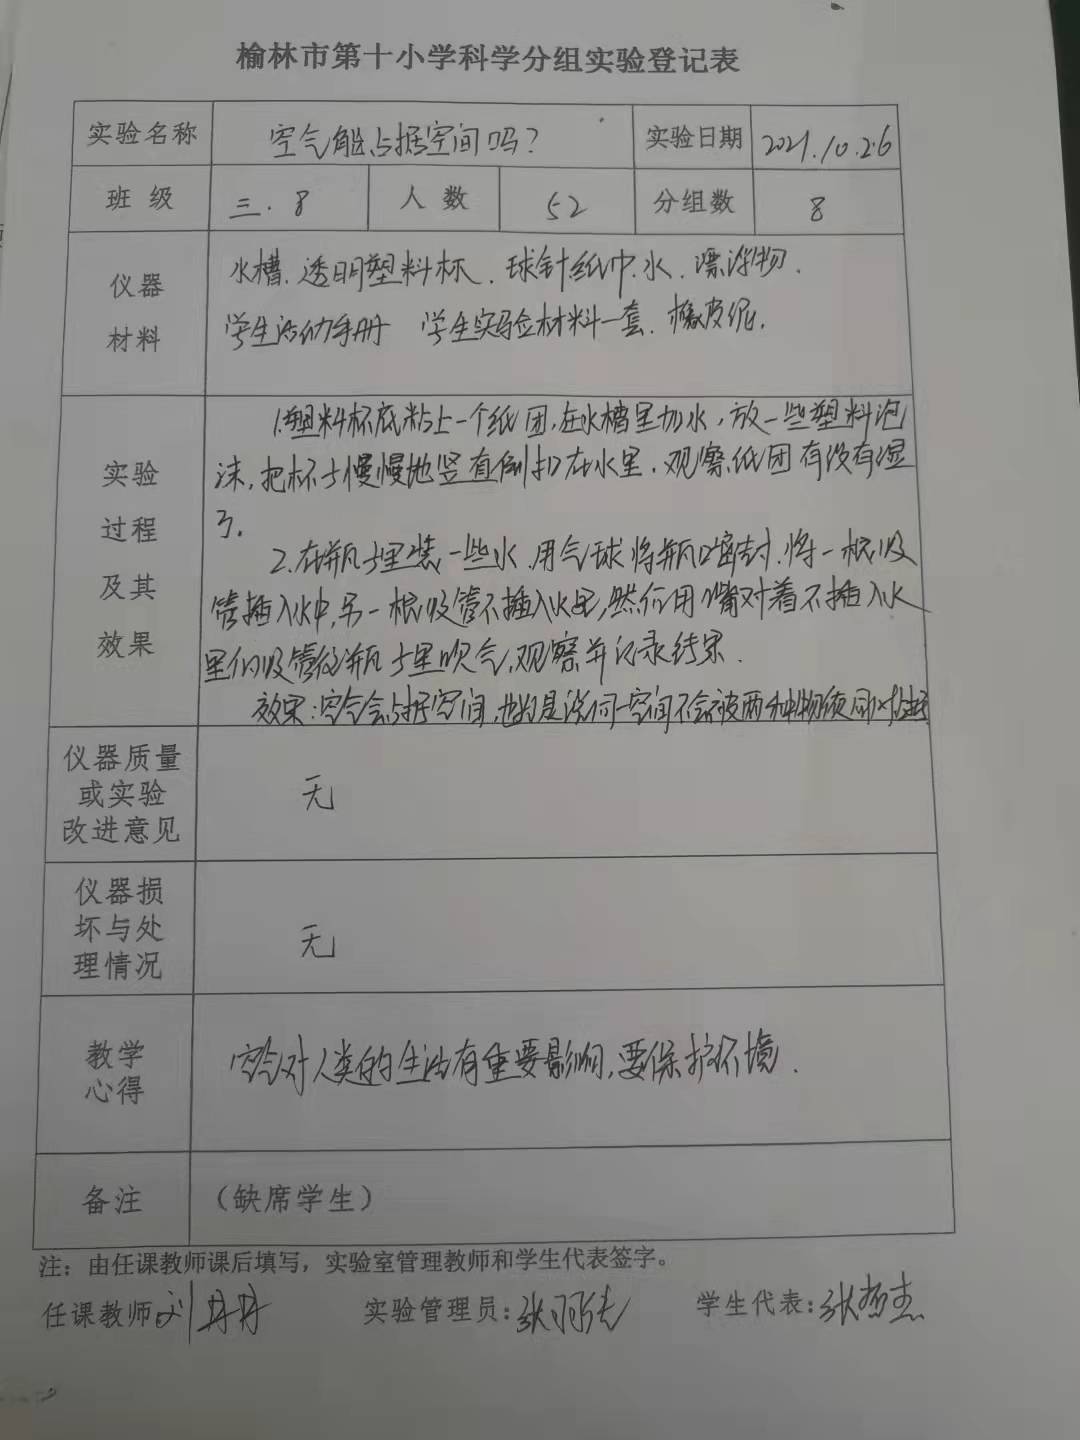 榆林市第十小学科学分组实验登记表
实验名称 空气能占据空间吗? 实验日期 2021.10.26
班 级 三.8 人 数 52 分组数 8
仪器
材料
水槽.透明塑料杯.球针纸巾.水.漂浮物.
学生活动手册 学生实验材料一套.橡皮泥.
实验
过程
及其
效果
1.塑料杯底粘上一个纸团,在水槽里加水,放一些塑料泡
沫,把杯子慢慢地竖直倒扣在水里.观察纸团有没有湿
了.
2.在瓶子里装一些水.用气球将瓶口密封.将一根吸
管插入水中,另一根吸管不插入水里,然后用嘴对着不插入水
里的吸管往瓶子里吹气,观察并记录结果.
效果:空气会占据空间,也就是说同一空间不会被两种物质同时占据
仪器质量
或实验
改进意见
无
仪器损
坏与处
理情况
无
教学
心得
空气对人类的生活有重要影响,要保护环境.
备注 (缺席学生)
注:由任课教师课后填写,实验室管理教师和学生代表签字。
任课教师 刘丹丹 实验管理员: 学生代表: